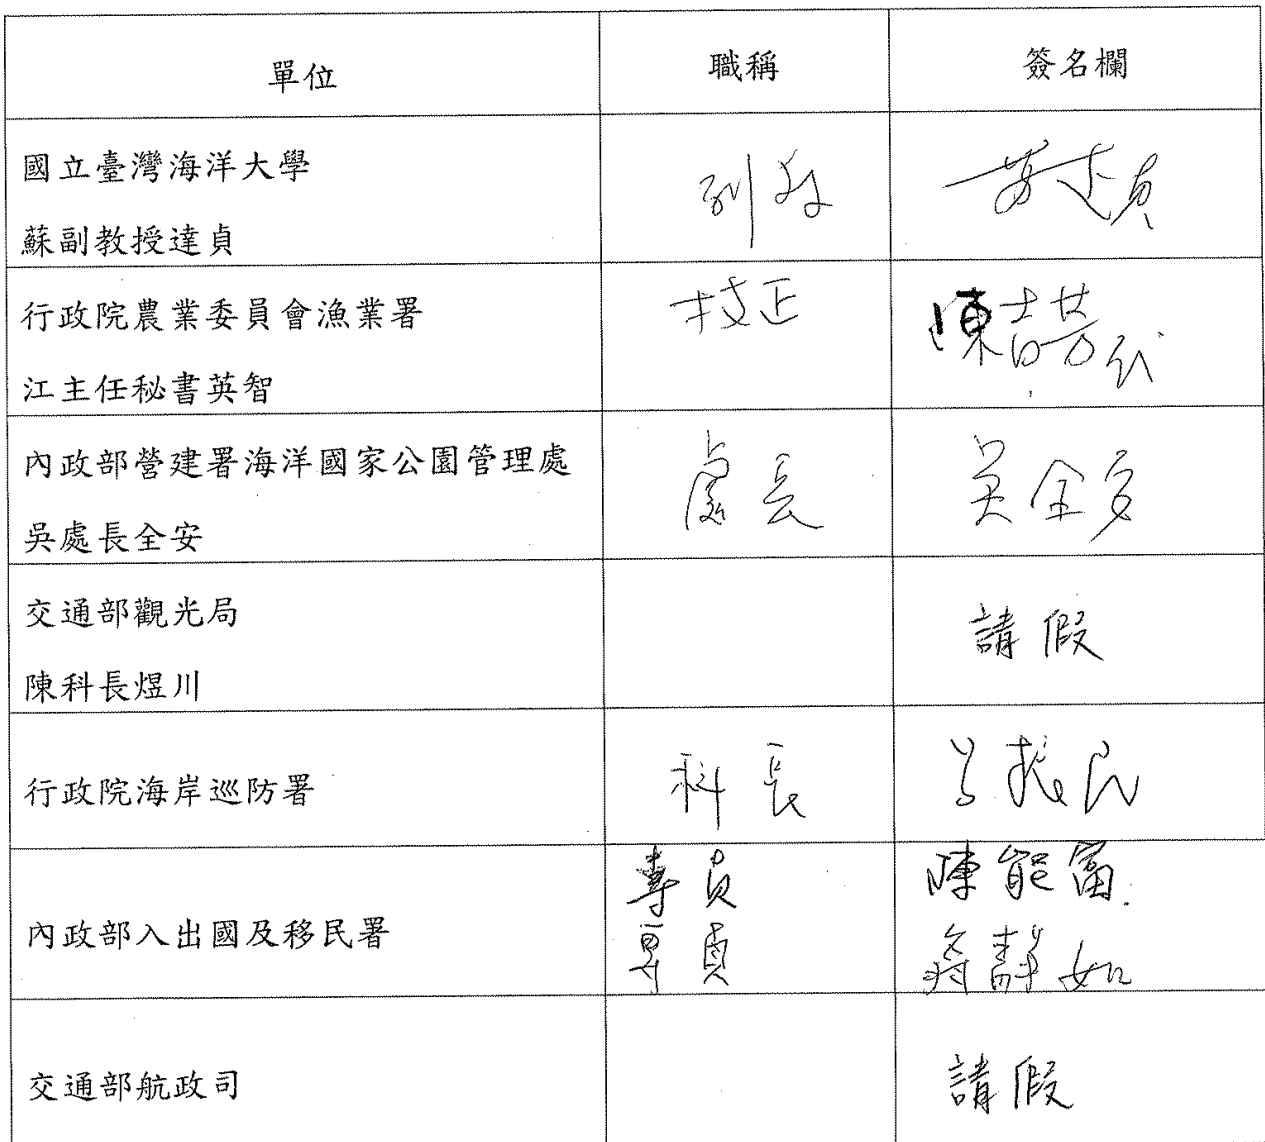 單位
職稱
簽名欄
國立臺灣海洋大學
蘇副教授達貞
副教
蘇達貞
行政院農業委員會漁業署
江主任秘書英智
技正
陳吉芳代
內政部營建署海洋國家公園管理處
吳處長全安
處長
吳全安
交通部觀光局
陳科長煜川
請假
行政院海岸巡防署
科長
內政部入出國及移民署
專員
專員
陳能富
蔣靜如
交通部航政司
請假